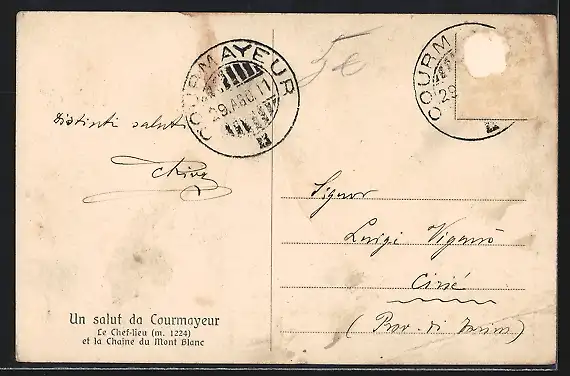 COURMAYEUR
29.AGO.11
5€
COURM
29
Distinti saluti
Signor
Luigi Viganò
Cirié
(Prov. di Torino)
Un salut da Courmayeur
Le Chef-lieu (m. 1224)
et la Chaîne du Mont Blanc